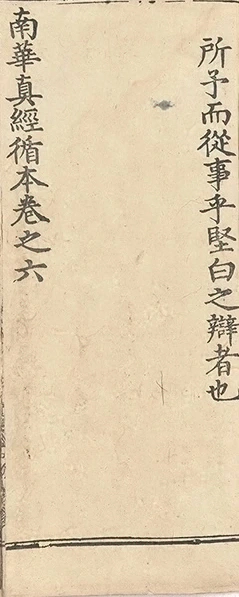 所予而從事乎堅白之辯者也
南華真經循本卷之六